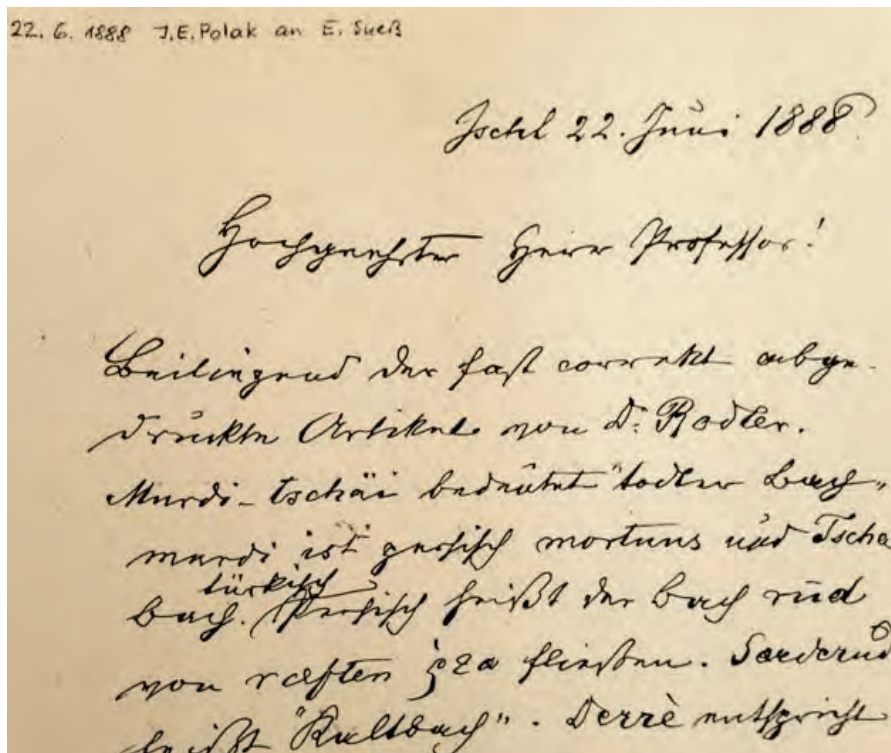 22. 6. 1888 J.E. Polak an E. Sueß
Ischl 22. Juni 1888.
Hochgeehrter Herr Professor!
Beiliegend der fast correkt abge-
druckte Artikel von Dr. Rodler.
Murdi-tschäi bedeutet "todter Bach"
murdi ist persisch mortuus und Tscha
türkisch
Bach. Persisch heißt der Bach rud
von fließen. Sarderud
heißt "Kaltbach". Derrè entspricht